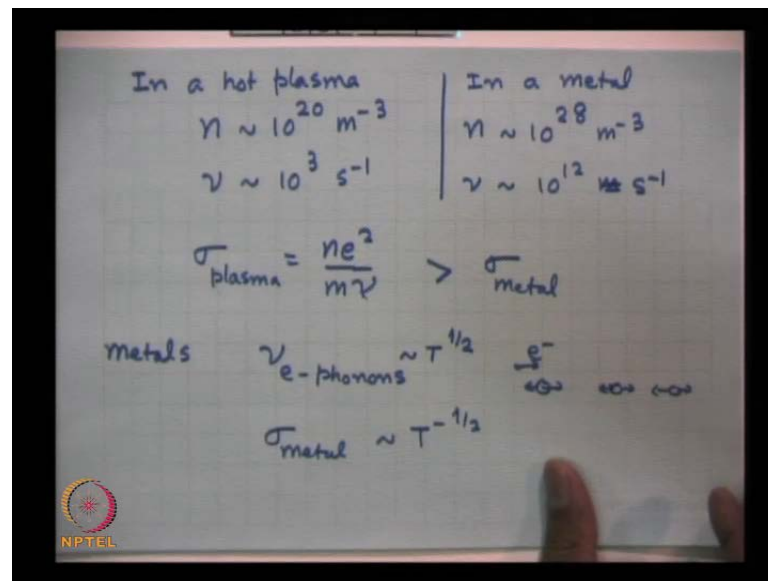 In a hot plasma
n ~ 10^20 m^-3
ν ~ 10^3 s^-1
In a metal
n ~ 10^28 m^-3
ν ~ 10^12 s^-1
σ_plasma = ne^2/mν > σ_metal
metals ν_e-phonons ~ T^1/2 e^-
σ_metal ~ T^-1/2
NPTEL